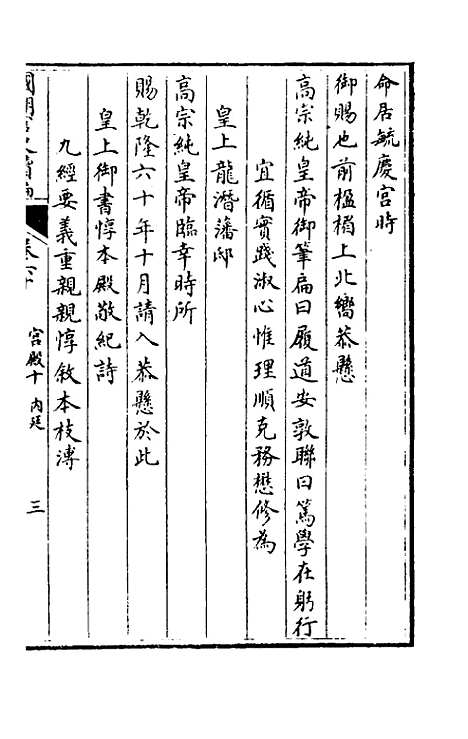 命居毓慶宮時
御賜也前楹楣上北嚮恭懸
高宗純皇帝御筆扁曰履道安敦聯曰篤學在躬行
宜循實踐淑心惟理順克務懋修為
皇上龍潛藩邸
高宗純皇帝臨幸時所
賜乾隆六十年十月請入恭懸於此
皇上御書惇本殿敬紀詩
九經要義重親親惇敘本枝溥
國朝宮史續編
卷六十
宮殿十 內廷
三